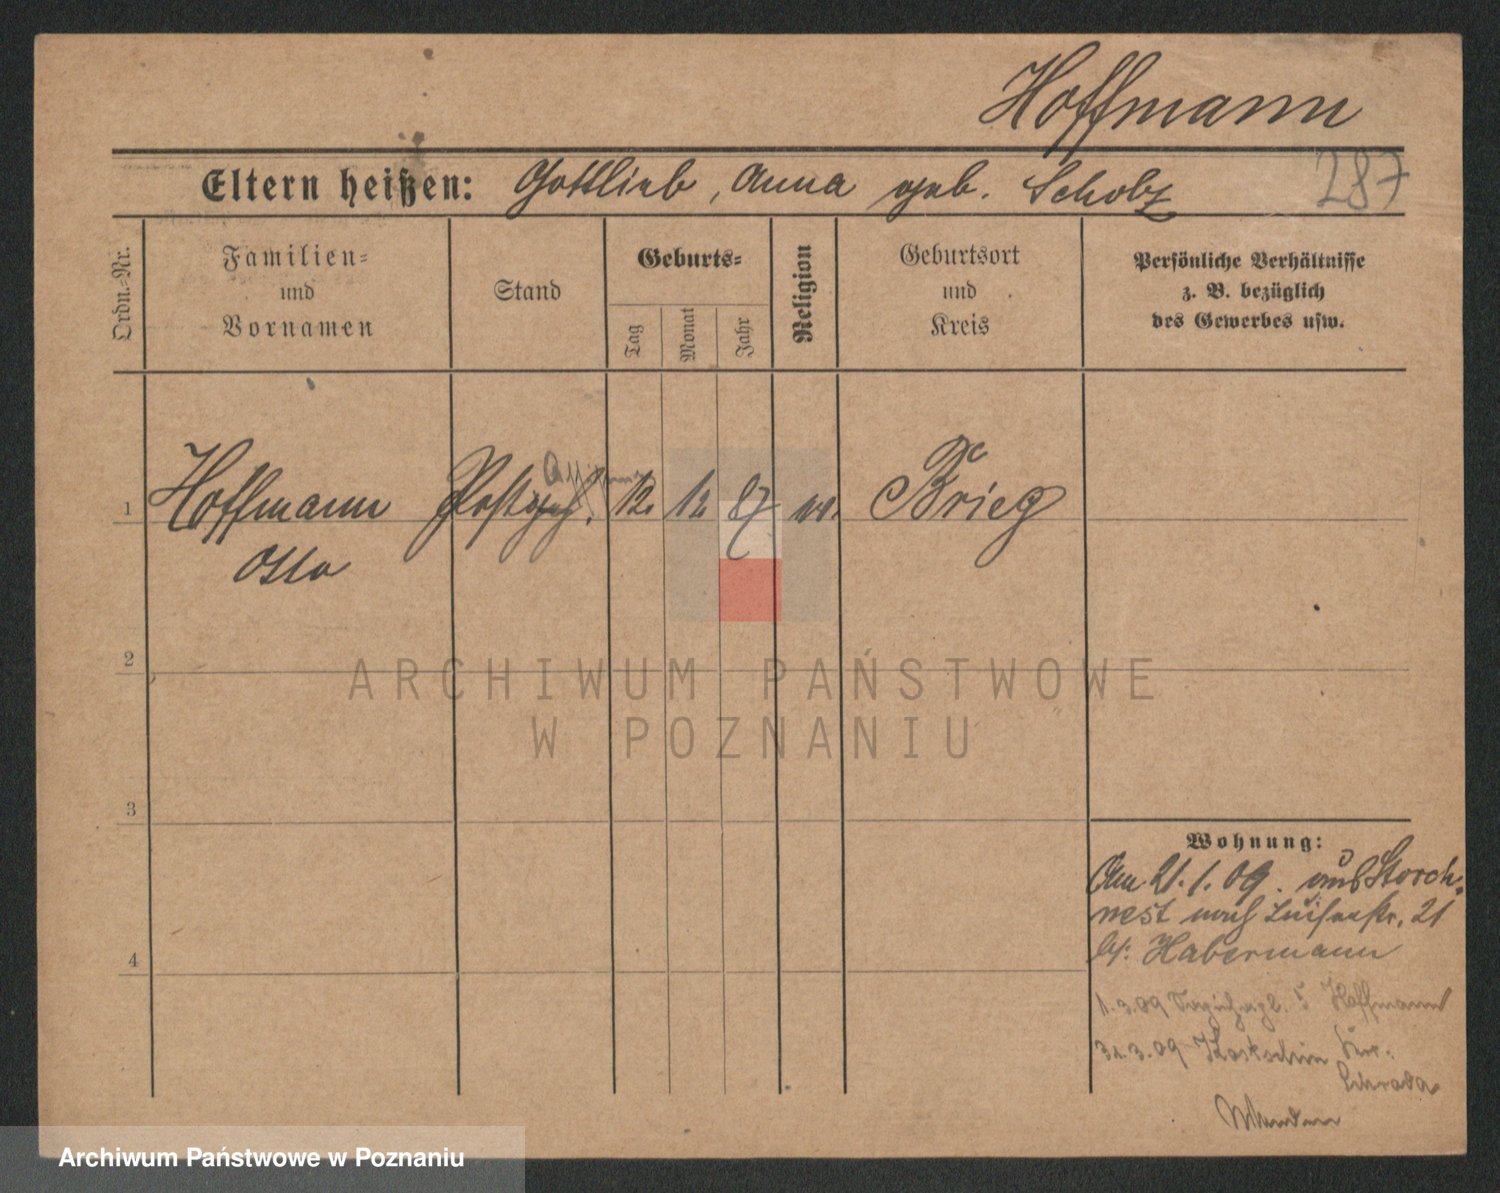 Hoffmann
Eltern heißen: Gottlieb, Anna geb. Scholz
287
Ordn.-Nr.
Familien-
und
Vornamen
Stand
Geburts-
Tag
Monat
Jahr
Religion
Geburtsort
und
Kreis
Persönliche Verhältnisse
z. B. bezüglich
des Gewerbes usw.
1 Hoffmann 12. 12 87 Brieg
Otto
2
3
4
ARCHIWUM PAŃSTWOWE
W POZNANIU
Wohnung:
Am 21.1.09. aus Storch-
nest nach Luisenstr. 21
bei Habermann
1.3.09 5 Hoffmann
31.3.09 Kostschin Kr.
Schroda
Archiwum Państwowe w Poznaniu